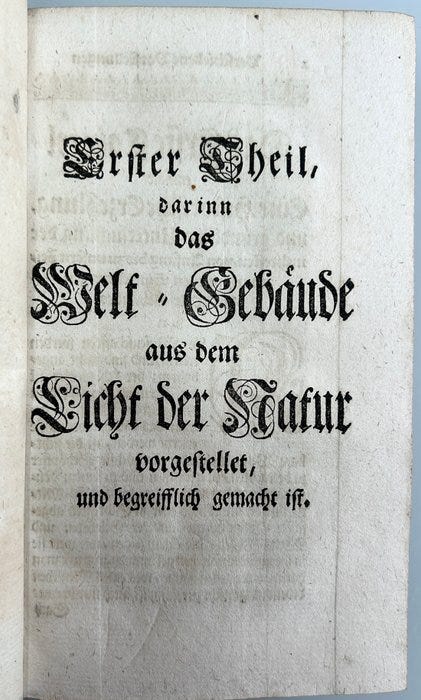 Erster Theil,
darinn
das
Welt⸗Gebäude
aus dem
Licht der Natur
vorgestellet,
und begreifflich gemacht ist.